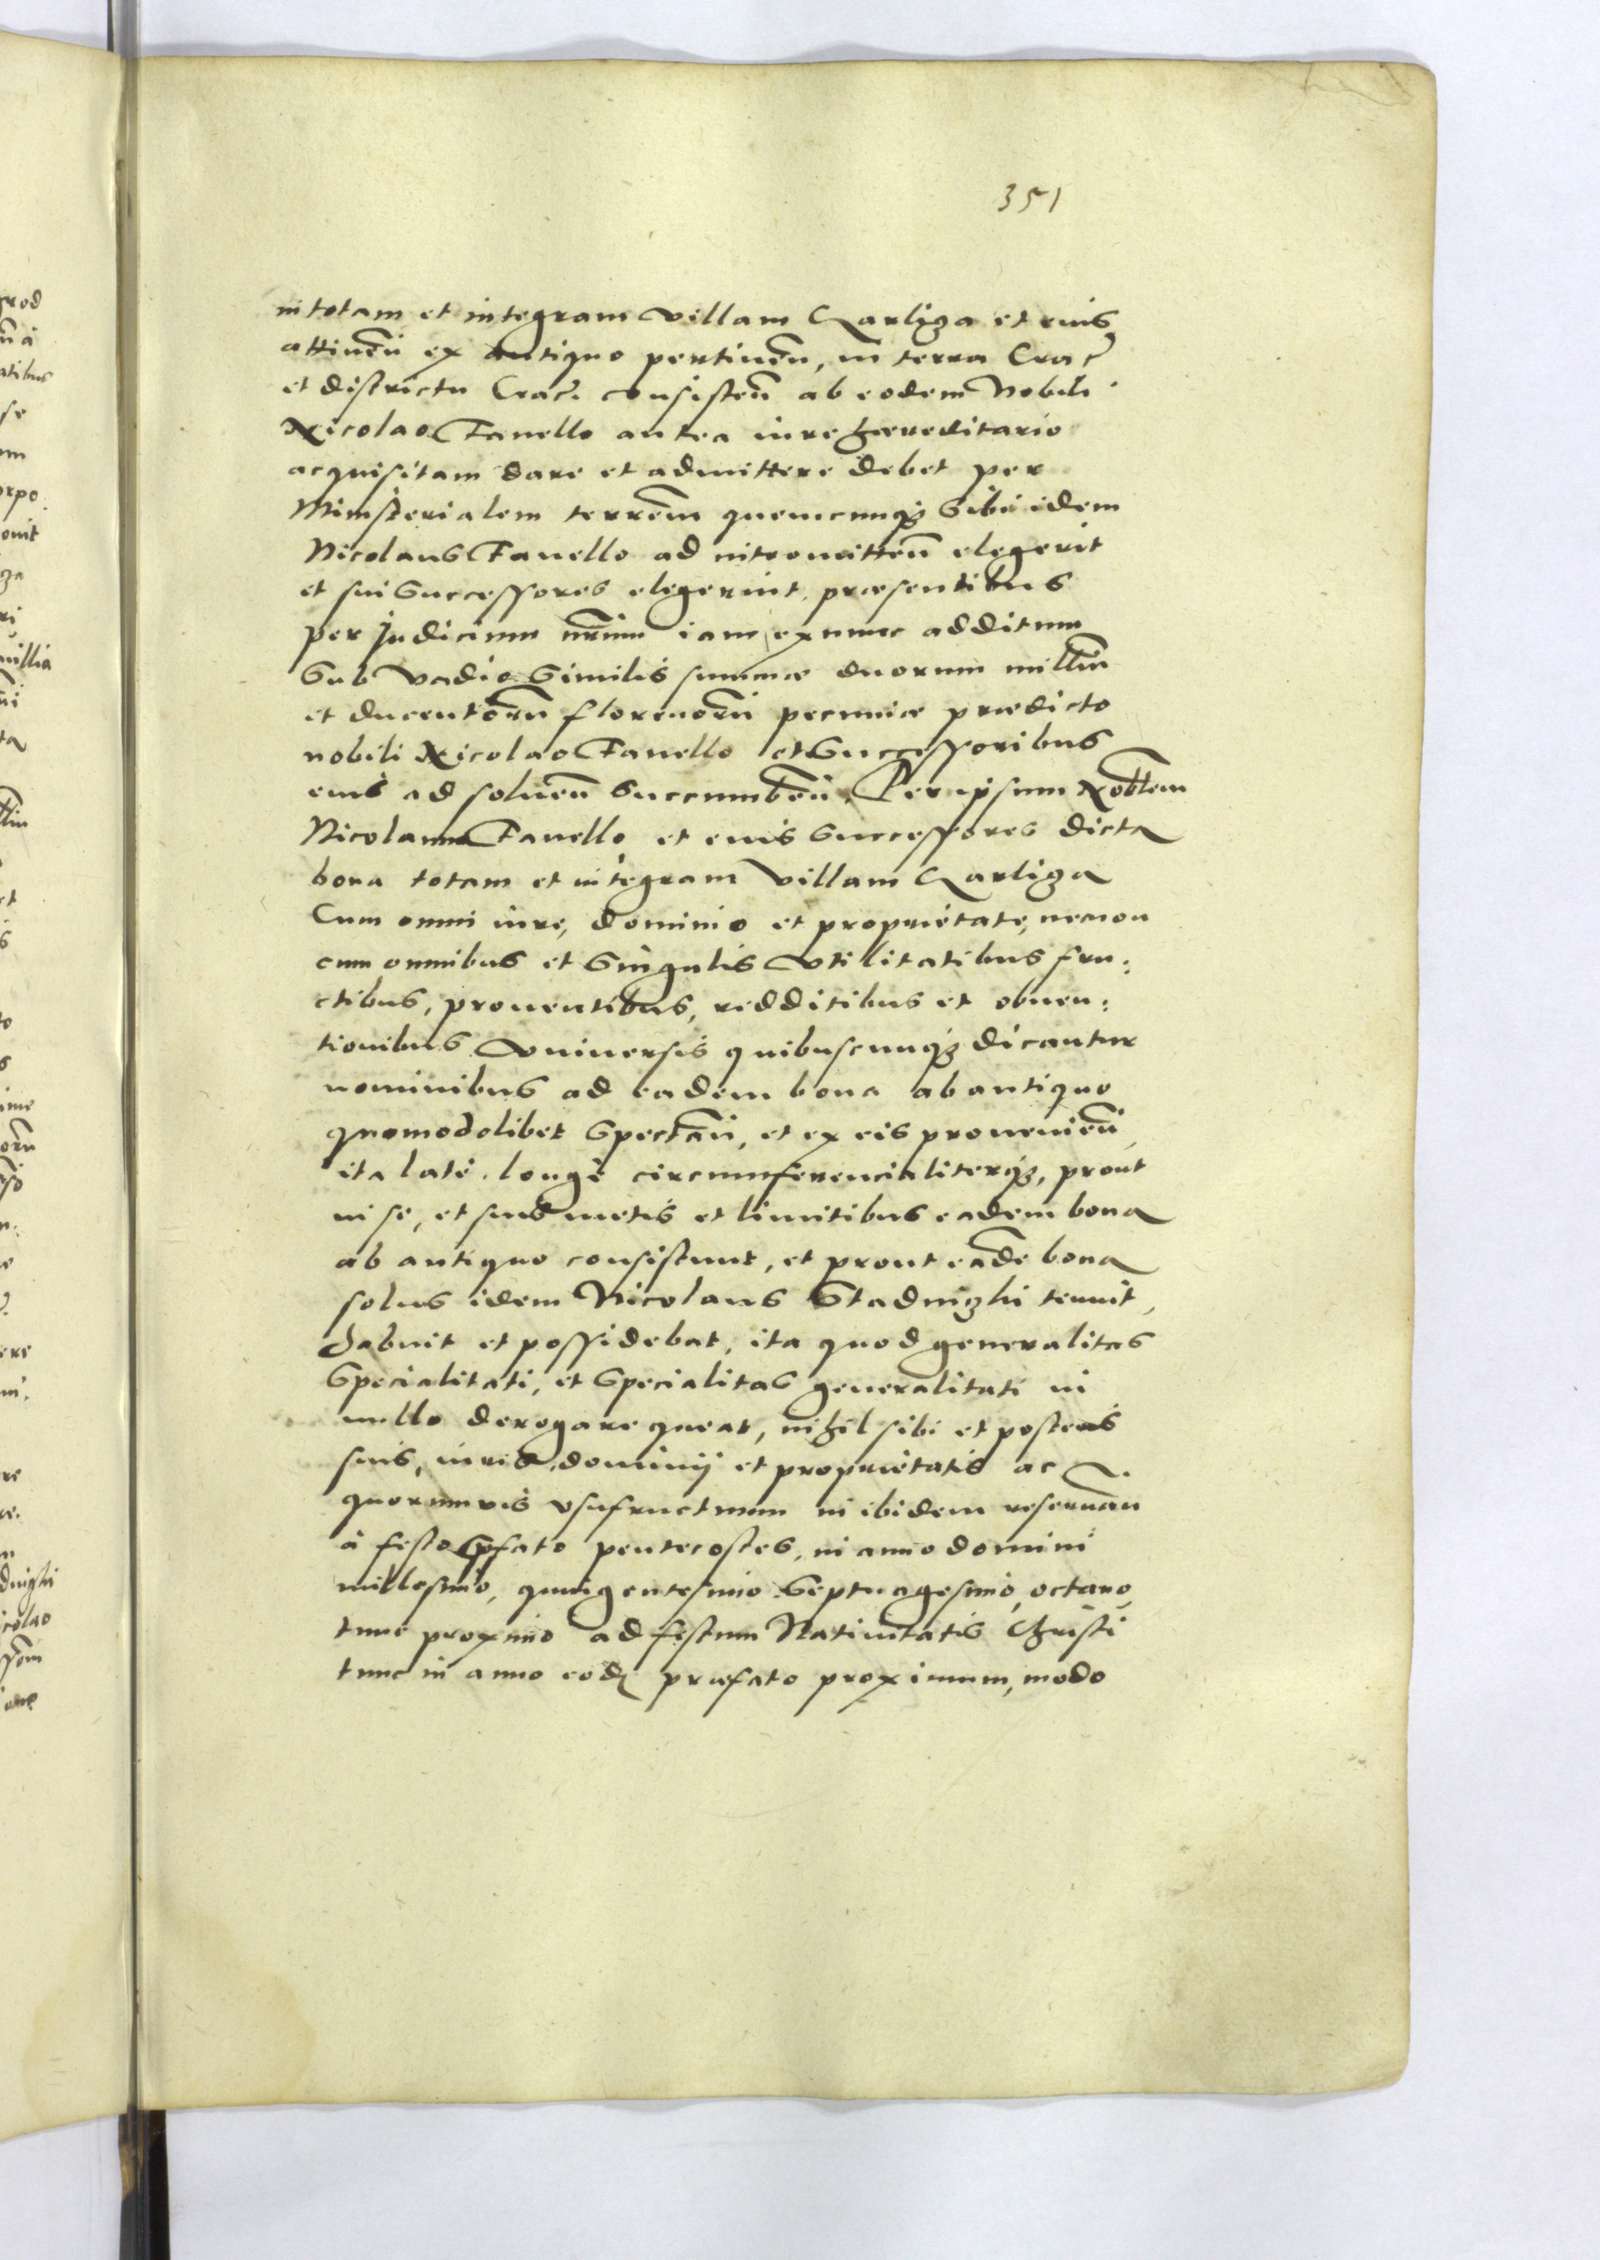 351
in totam et integram villam Czarliga et eius
attinen̄ ex antiquo pertinen̄, in terra Crac̄
et districtu Crac̄. consisten̄ ab eodem Nobili
Nicolao Fanello antea iure hæreditario
acquisitam dare et admittere debet per
Ministerialem terrēm quemcunqȝ sibi idem
Nicolaus Fanello ad intromitten̄ elegerit
et sui successores elegerint, præsentibus
per Judicium nr̄um iam ex nunc additum
sub vadio similis summæ duorum milliū
et ducentorū florenorū pecuniæ prædicto
nobili Nicolao Fanello et successoribus
eius ad soluen̄ succumben̄. Per ipsum Nobīlem
Nicolaum Fanello et eius successores dicta
bona totam et integram villam Czarliga
Cum omni iure, dominio et proprietate, necnon
cum omnibus et singulis vtilitatibus fru:
ctibus, prouentibus, redditibus et obuen:
tionibus vniuersis quibuscunqȝ dicantur
nominibus ad eadem bona ab antiquo
quomodolibet spectan̄, et ex eis prouenien̄
ita latè, longè circumferencialiterqȝ, prout
in se, et suis metis et limitibus eadem bona
ab antiquo consistunt, et prout eadē bona
solus idem Nicolaus Stadnizki tenuit,
habuit et possidebat, ita quod generalitas
specialitati, et specialitas generalitati in
nullo derogare queat, nihil sibi et posteris
suis, iuris, dominij et proprietatis ac
quorumvis vsufructuum in ibidem reseruan̄
à festo p̄fato pentecostes, in anno domini
millesimo, quingentesimo septuagesimo, octauo,
tunc proximo ad festum Natiuitatis Christi
tunc in anno eod præfato proximum, modo